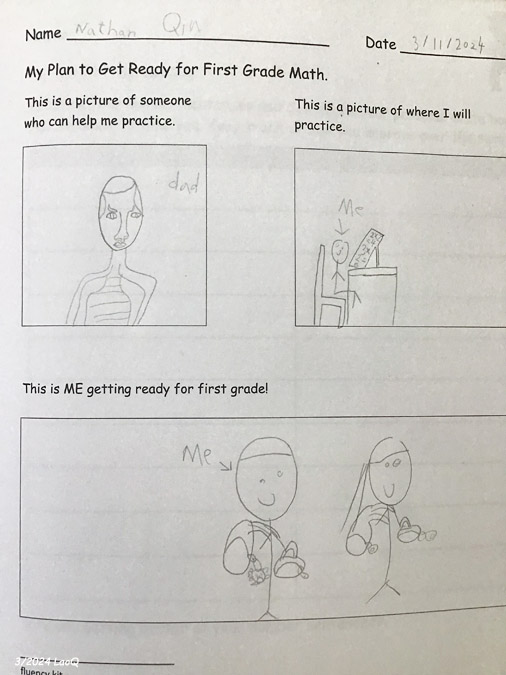 Name Nathan Qin
Date 3/11/2024
My Plan to Get Ready for First Grade Math.
This is a picture of someone
who can help me practice.
This is a picture of where I will
practice.
dad
Me
This is ME getting ready for first grade!
Me
3/2024 LaoQ
fluency kit